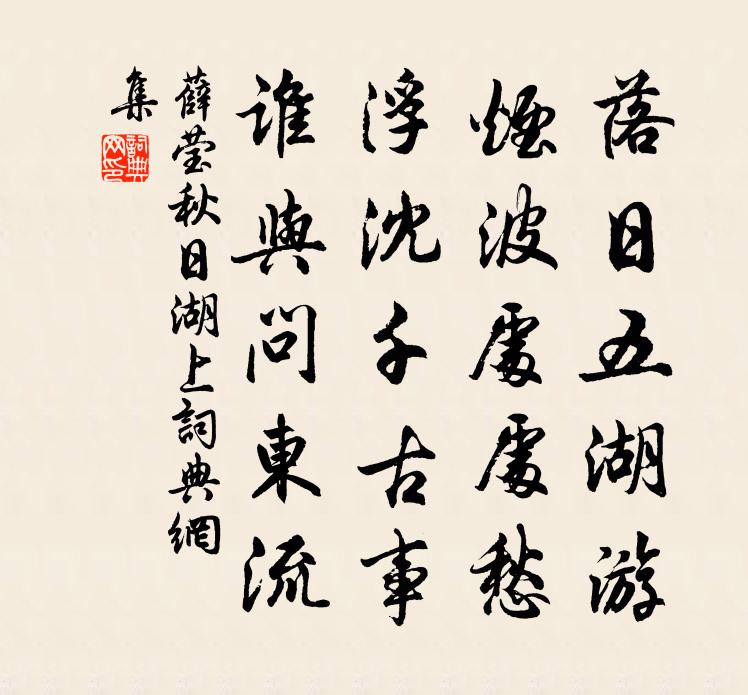 落日五湖游
煙波處處愁
浮沈千古事
誰與問東流
薛瑩秋日湖上詞典網
集
詞典
网印